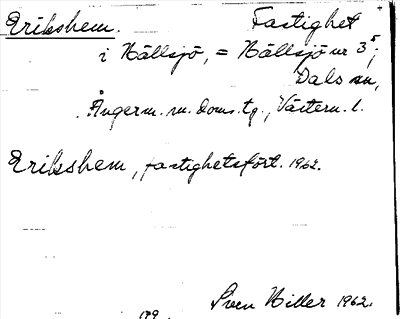 Erikshem. Fastighet
i Hällsjö, = Hällsjö nr 3⁵;
Dals sn,
Ångerm. m. doms. tg., Västern. l.
Erikshem, fastighetsfört. 1962.
Sven Hiller 1962.
179.